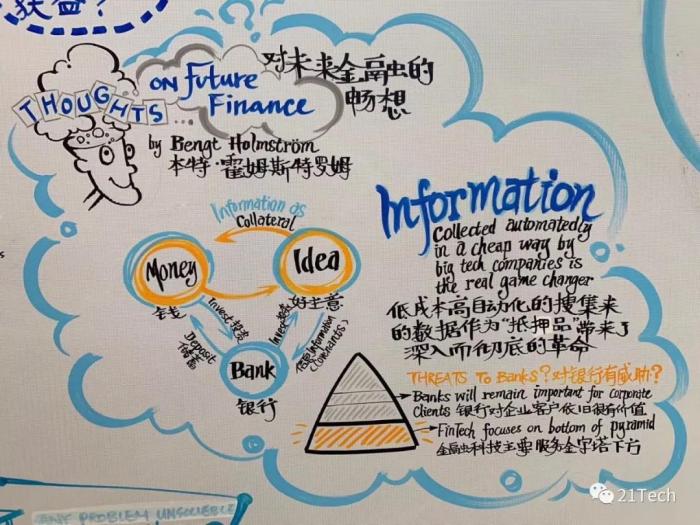 获益?
THOUGHTS...
ON Future
Finance
对未来金融的
畅想
by Bengt Holmström
本特·霍姆斯特罗姆
Information as
Collateral
Money
钱
Idea
好主意
Invest 投资
Invest 投资
Deposit
储蓄
信息 Information
(covenants)
Bank
银行
Information
collected automatedly
in a cheap way by
big tech companies is
the real game changer
低成本高自动化的搜集来
的数据作为“抵押品”带来了
深入而彻底的革命
THREATS To BANKS? 对银行有威胁?
Banks will remain important for corporate
clients 银行对企业客户依旧很有价值
FinTech focuses on bottom of pyramid
金融科技主要服务金字塔下方
ANY PROBLEM UNSOLVABLE
21Tech